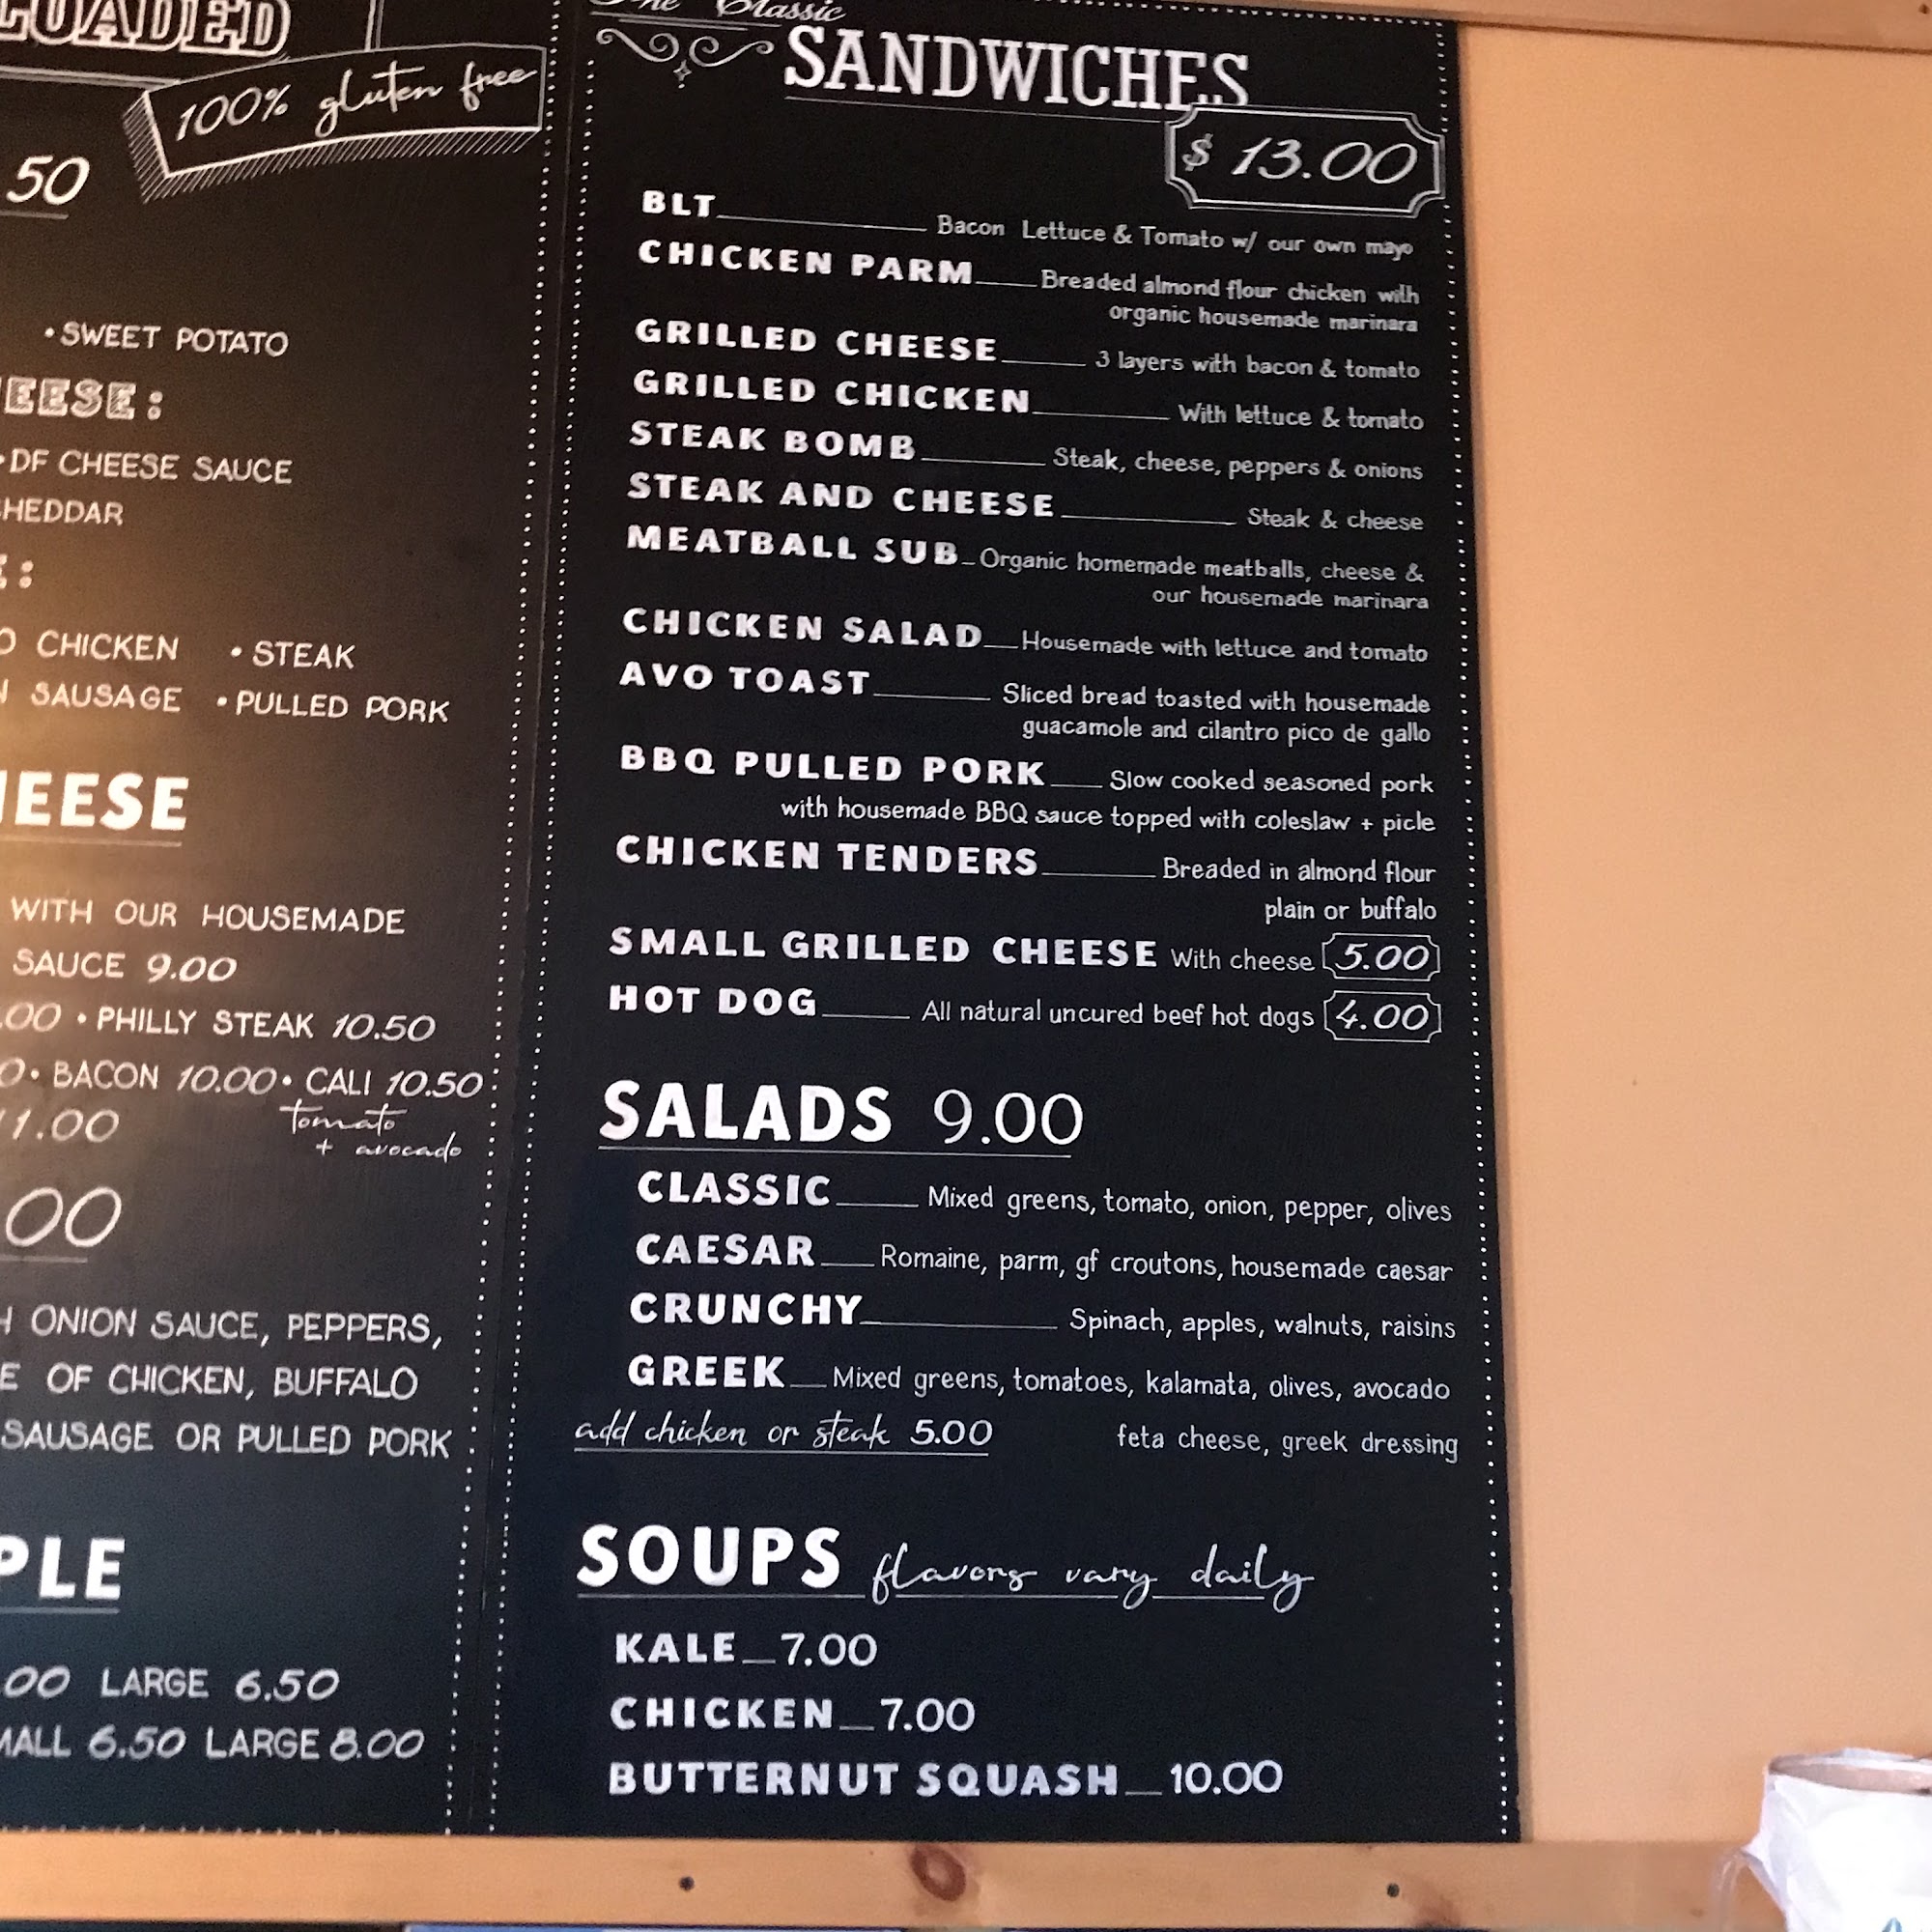 LOADED
100% gluten free
50
• SWEET POTATO
EESE:
• DF CHEESE SAUCE
HEDDAR
:
CHICKEN • STEAK
SAUSAGE • PULLED PORK
EESE
WITH OUR HOUSEMADE
SAUCE 9.00
.00 • PHILLY STEAK 10.50
• BACON 10.00 • CALI 10.50
tomato
+ avocado
11.00
00
ONION SAUCE, PEPPERS,
OF CHICKEN, BUFFALO
SAUSAGE OR PULLED PORK
PLE
.00 LARGE 6.50
MALL 6.50 LARGE 8.00
The Classic
SANDWICHES
$ 13.00
BLT Bacon Lettuce & Tomato w/ our own mayo
CHICKEN PARM Breaded almond flour chicken with
organic housemade marinara
GRILLED CHEESE 3 layers with bacon & tomato
GRILLED CHICKEN With lettuce & tomato
STEAK BOMB Steak, cheese, peppers & onions
STEAK AND CHEESE Steak & cheese
MEATBALL SUB Organic homemade meatballs, cheese &
our housemade marinara
CHICKEN SALAD Housemade with lettuce and tomato
AVO TOAST Sliced bread toasted with housemade
guacamole and cilantro pico de gallo
BBQ PULLED PORK Slow cooked seasoned pork
with housemade BBQ sauce topped with coleslaw + picle
CHICKEN TENDERS Breaded in almond flour
plain or buffalo
SMALL GRILLED CHEESE With cheese 5.00
HOT DOG All natural uncured beef hot dogs 4.00
SALADS 9.00
CLASSIC Mixed greens, tomato, onion, pepper, olives
CAESAR Romaine, parm, gf croutons, housemade caesar
CRUNCHY Spinach, apples, walnuts, raisins
GREEK Mixed greens, tomatoes, kalamata, olives, avocado
add chicken or steak 5.00 feta cheese, greek dressing
SOUPS flavors vary daily
KALE 7.00
CHICKEN 7.00
BUTTERNUT SQUASH 10.00